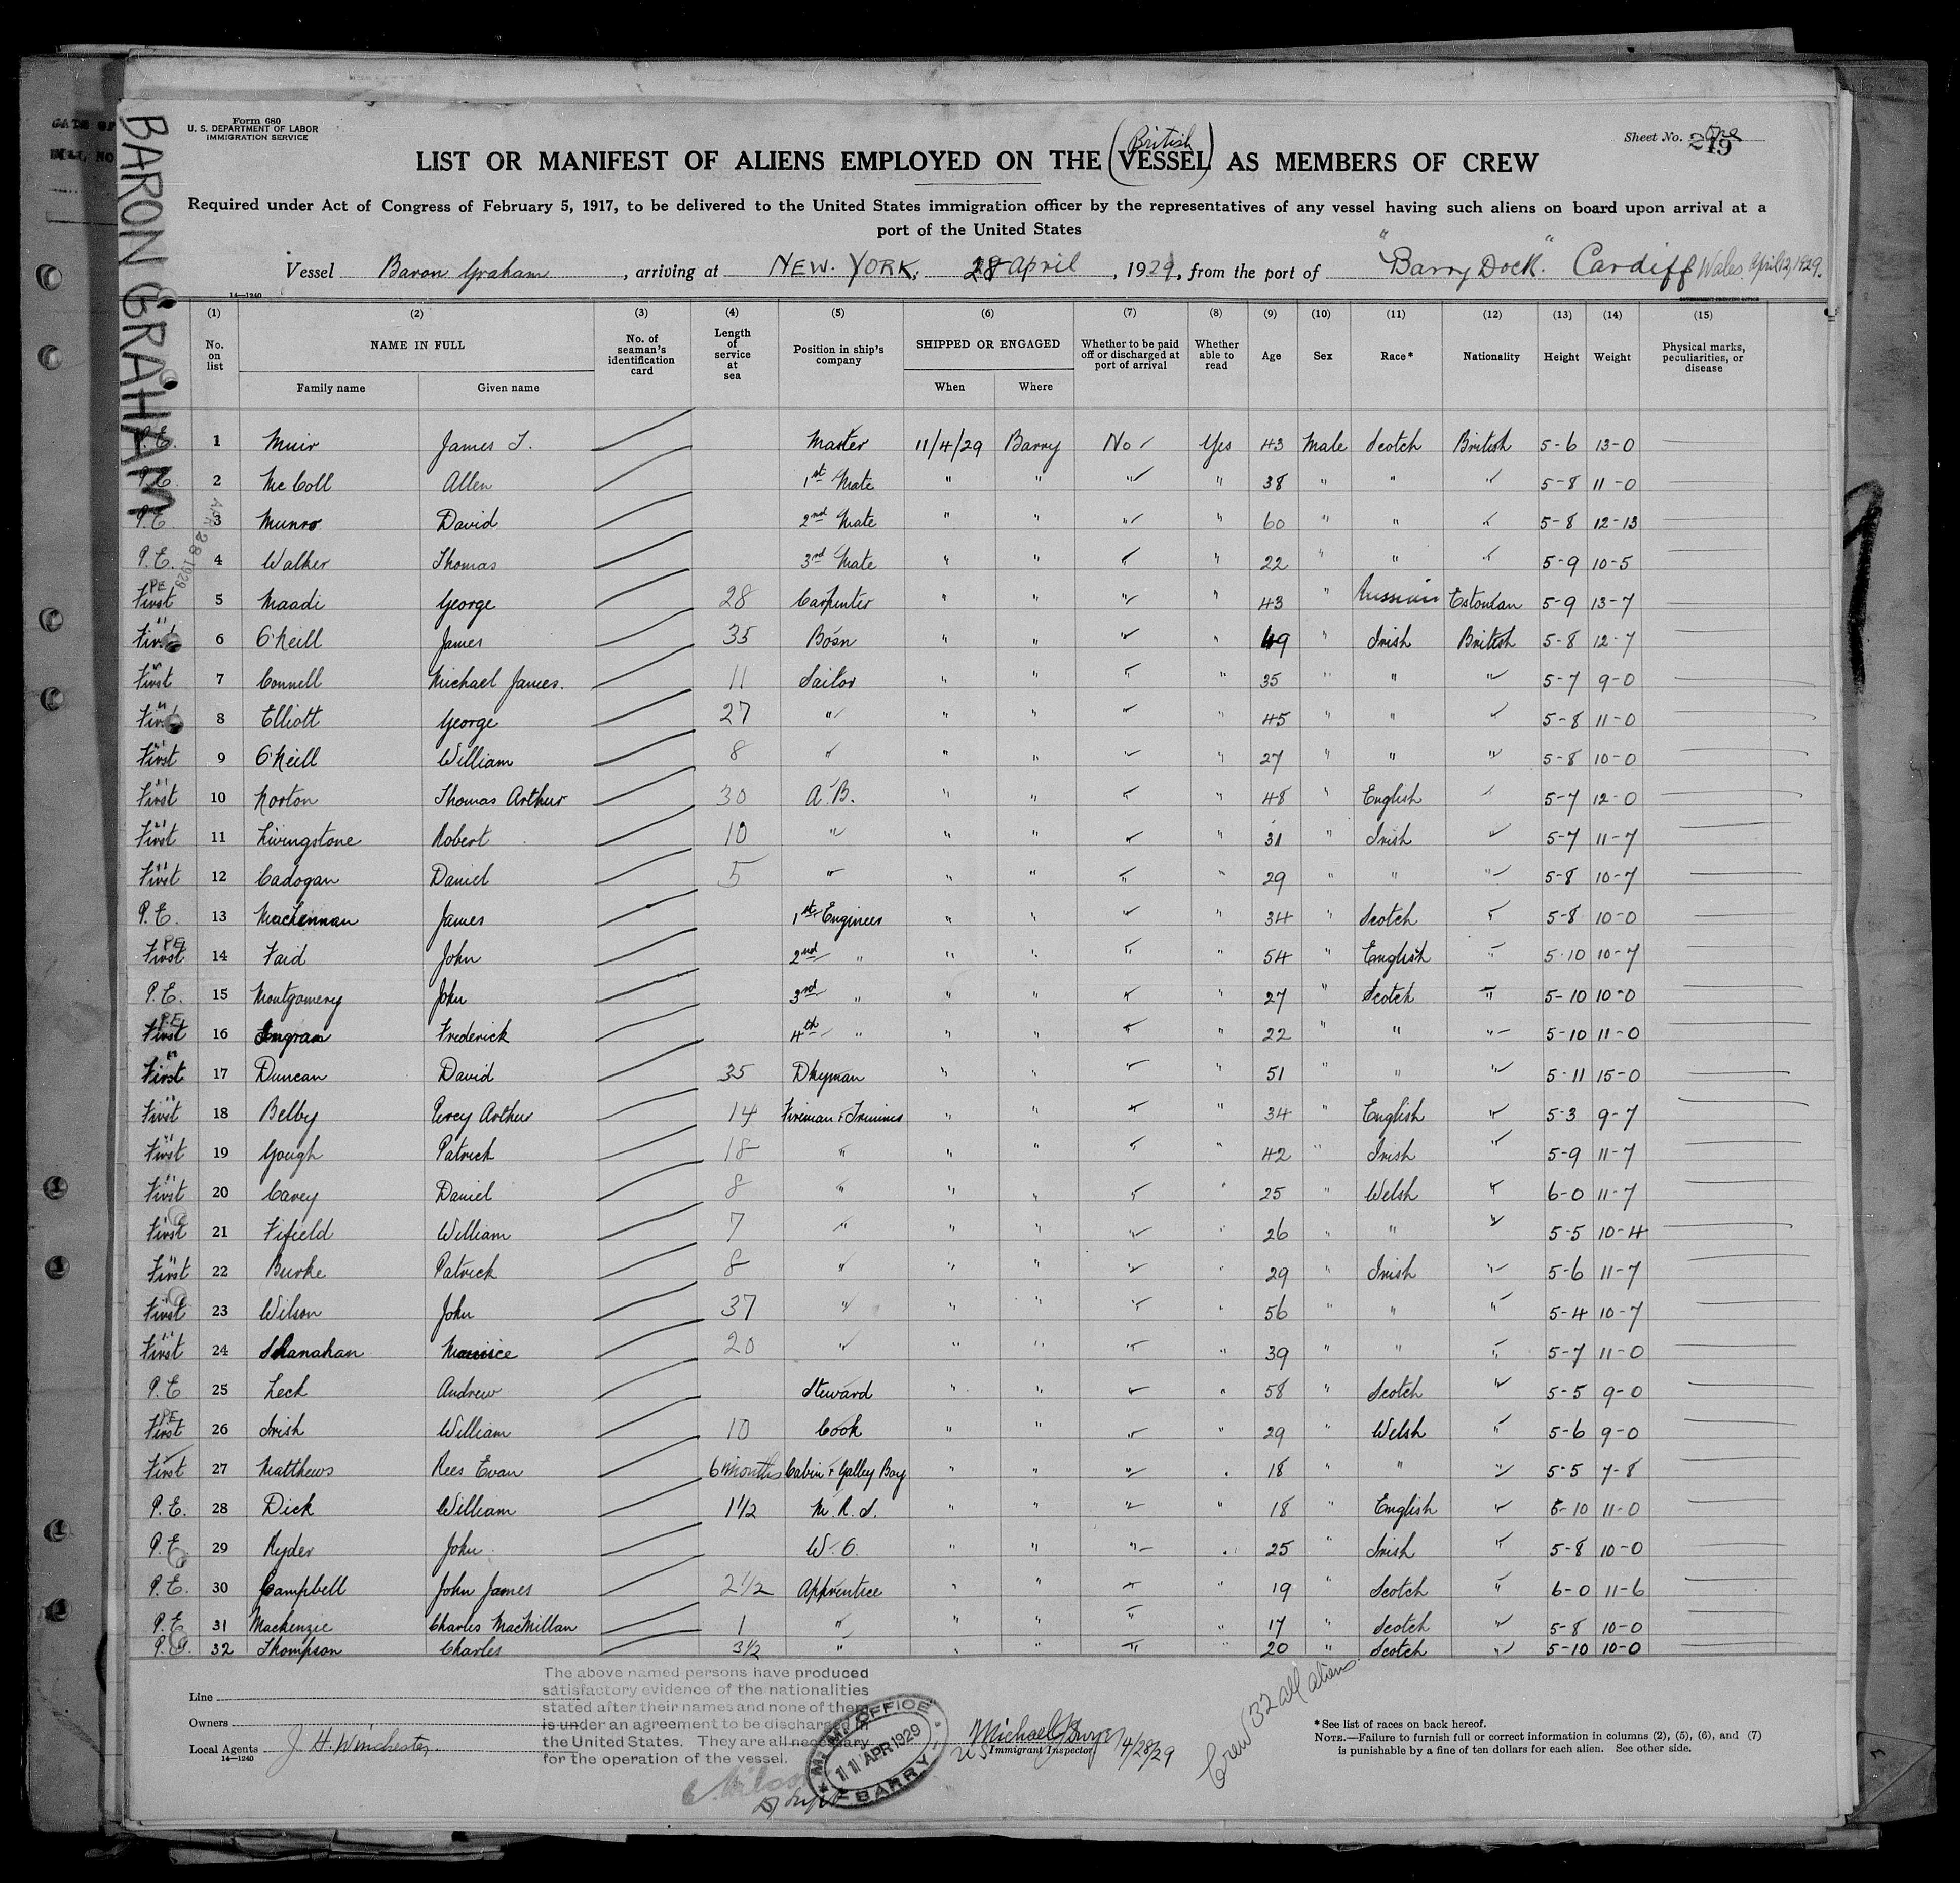 BARON GRAHAM
Form 680
U. S. DEPARTMENT OF LABOR
IMMIGRATION SERVICE
Sheet No. One
219
LIST OR MANIFEST OF ALIENS EMPLOYED ON THE (British VESSEL) AS MEMBERS OF CREW
Required under Act of Congress of February 5, 1917, to be delivered to the United States immigration officer by the representatives of any vessel having such aliens on board upon arrival at a
port of the United States
Vessel Baron Graham, arriving at NEW. YORK, 28 April, 1929, from the port of "Barry Dock." Cardiff Wales. April 12, 1929.
14—1240
(1) (2) (3) (4) (5) (6) (7) (8) (9) (10) (11) (12) (13) (14) (15)
No. on list NAME IN FULL No. of seaman's identification card Length of service at sea Position in ship's company SHIPPED OR ENGAGED Whether to be paid off or discharged at port of arrival Whether able to read Age Sex Race* Nationality Height Weight Physical marks, peculiarities, or disease
Family name Given name When Where
P.E. 1 Muir James T. Master 11/4/29 Barry No Yes 43 Male Scotch British 5-6 13-0
P.E. 2 McColl Allen 1st Mate " " " " 38 " " " 5-8 11-0
P.E. 3 Munro David 2nd Mate " " " " 60 " " " 5-8 12-13
P.E. 4 Walker Thomas 3rd Mate " " " " 22 " " " 5-9 10-5
PE First 5 Maadi George 28 Carpenter " " " " 43 " Russian Estonian 5-9 13-7
" First 6 O'Neill James 35 Bosn " " " " 49 " Irish British 5-8 12-7
" First 7 Connell Michael James. 11 Sailor " " " " 35 " " " 5-7 9-0
" First 8 Elliott George 27 " " " " " 45 " " " 5-8 11-0
" First 9 O'Neill William 8 " " " " " 27 " " " 5-8 10-0
" First 10 Norton Thomas Arthur 30 A.B. " " " " 48 " English " 5-7 12-0
" First 11 Livingstone Robert 10 " " " " " 31 " Irish " 5-7 11-7
" First 12 Cadogan Daniel 5 " " " " " 29 " " " 5-8 10-7
P.E. 13 MacLennan James 1st Engineer " " " " 34 " Scotch " 5-8 10-0
PE First 14 Faid John 2nd " " " " " 54 " English " 5-10 10-7
P.E. 15 Montgomery John 3rd " " " " " 27 " Scotch " 5-10 10-0
P.E. First 16 Ingram Frederick 4th " " " " " 22 " " " 5-10 11-0
" First 17 Duncan David 35 Dkyman " " " " 51 " " " 5-11 15-0
" First 18 Belby Percy Arthur 14 Fireman & Trimmer " " " " 34 " English " 5-3 9-7
" First 19 Gough Patrick 18 " " " " " 42 " Irish " 5-9 11-7
" First 20 Carey Daniel 8 " " " " " 25 " Welsh " 6-0 11-7
First 21 Fifield William 7 " " " " " 26 " " " 5-5 10-4
" First 22 Burke Patrick 8 " " " " " 29 " Irish " 5-6 11-7
First 23 Wilson John 37 " " " " " 56 " " " 5-4 10-7
" First 24 Shanahan Maurice 20 " " " " " 39 " " " 5-7 11-0
P.E 25 Leck Andrew Steward " " " " 58 " Scotch " 5-5 9-0
PE First 26 Irish William 10 Cook " " " " 29 " Welsh " 5-6 9-0
First 27 Matthews Rees Evan 6 months Cabin & Galley Boy " " " " 18 " " " 5-5 7-8
P.E. 28 Dick William 1½ M.R.S. " " " " 18 " English " 5-10 11-0
P.E. 29 Ryder John W.O. " " " " 25 " Irish " 5-8 10-0
P.E. 30 Campbell John James 2½ Apprentice " " " " 19 " Scotch " 6-0 11-6
P.E. 31 Mackenzie Charles MacMillan 1 " " " " " 17 " Scotch " 5-8 10-0
P.E. 32 Thompson Charles 3½ " " " " " 20 " Scotch " 5-10 10-0
APR 28 1929
The above named persons have produced
satisfactory evidence of the nationalities
stated after their names and none of them
is under an agreement to be discharged in
the United States. They are all necessary
for the operation of the vessel.
Line
Owners
Local Agents J. H. Winchester
14—1240
M.M. OFFICE
11 APR 1929
BARRY
Michael
U S Immigrant Inspector 4/28/29
Crew 32 all aliens.
*See list of races on back hereof.
NOTE.—Failure to furnish full or correct information in columns (2), (5), (6), and (7)
is punishable by a fine of ten dollars for each alien. See other side.